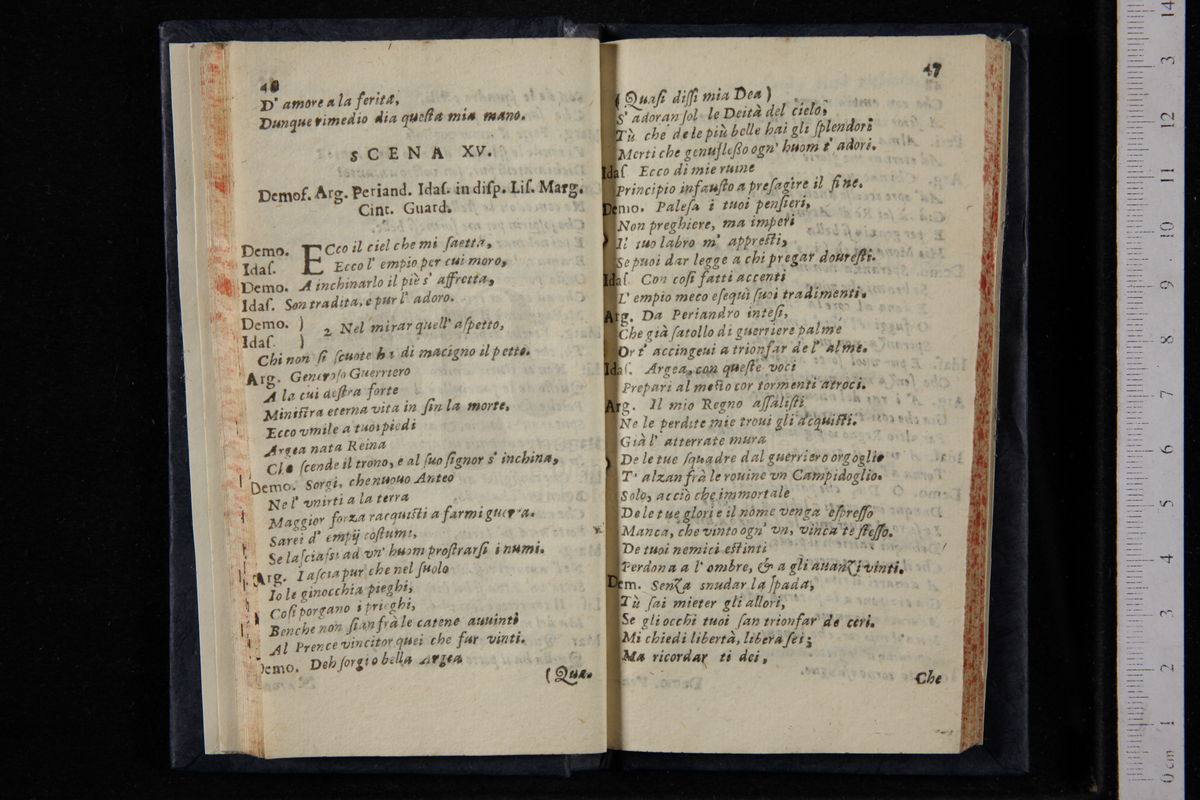 48
D' amore a la ferita,
Dunque rimedio dia questa mia mano.
SCENA XV.
Demof. Arg. Periand. Idaſ. in diſp. Liſ. Marg.
Cint. Guard.
Demo. ECco il ciel che mi ſaetta,
Idaſ. Ecco l' empio per cui moro,
Demo. A inchinarlo il piè s' affretta,
Idaſ. Son tradita, e pur l' adoro.
Demo. )
Idaſ. ) 2 Nel mirar quell' aſpetto,
Chi non ſi ſcuote hà di macigno il petto.
Arg. Generoſo Guerriero
A la cui deſtra forte
Miniſtra eterna vita in ſin la morte.
Ecco vmile a tuoi piedi
Argea nata Reina
Che ſcende il trono, e al ſuo ſignor s' inchina,
Demo. Sorgi, che nuouo Anteo
Ne l' vnirti a la terra
Maggior forza racquiſti a farmi guerra.
Sarei d' empij coſtumi,
Se laſciaſsi ad vn' huom proſtrarſi i numi.
Arg. Laſcia pur che nel ſuolo
Io le ginocchia pieghi,
Coſi porgano i prieghi,
Benche non ſian frà le catene auuinti
Al Prence vincitor quei che fur vinti.
Demo. Deh ſorgi o bella Argea
(Qua-
47
(Quaſi diſſi mia Dea)
S' adoran ſol le Deità del cielo;
Tù che de le più belle hai gli ſplendori
Merti che genufleßo ogn' huom t' adori.
Idaſ Ecco di mie ruine
Principio infauſto a preſagire il fine.
Demo. Paleſa i tuoi penſieri,
Non preghiere, ma imperi
Il tuo labro m' appreſti,
Se puoi dar legge a chi pregar doureſti.
Idaſ Con coſi fatti accenti
L' empio meco eſequì ſuoi tradimenti.
Arg. Da Periandro inteſi,
Che già ſatollo di guerriere palme
Or t' accingeui a trionfar de l' alme.
Idaſ. Argea, con queſte voci
Prepari al meſto cor tormenti atroci.
Arg. Il mio Regno aſſaliſti
Ne le perdite mie troui gli acquiſti.
Già l' atterrate mura
De le tue ſquadre dal guerriero orgoglio
T' alzan frà le rouine vn Campidoglio.
Solo, acciò che immortale
De le tue glorie il nome venga eſpreſſo
Manca, che vinto ogn' vn, vinca te ſteſſo.
De tuoi nemici eſtinti
Perdona a l' ombre, & a gli auanzi vinti.
Dem. Senza snudar la ſpada,
Tù ſai mieter gli allori,
Se gli occhi tuoi ſan trionfar de cori.
Mi chiedi libertà, libera ſei;
Ma ricordar ti dei,
Che